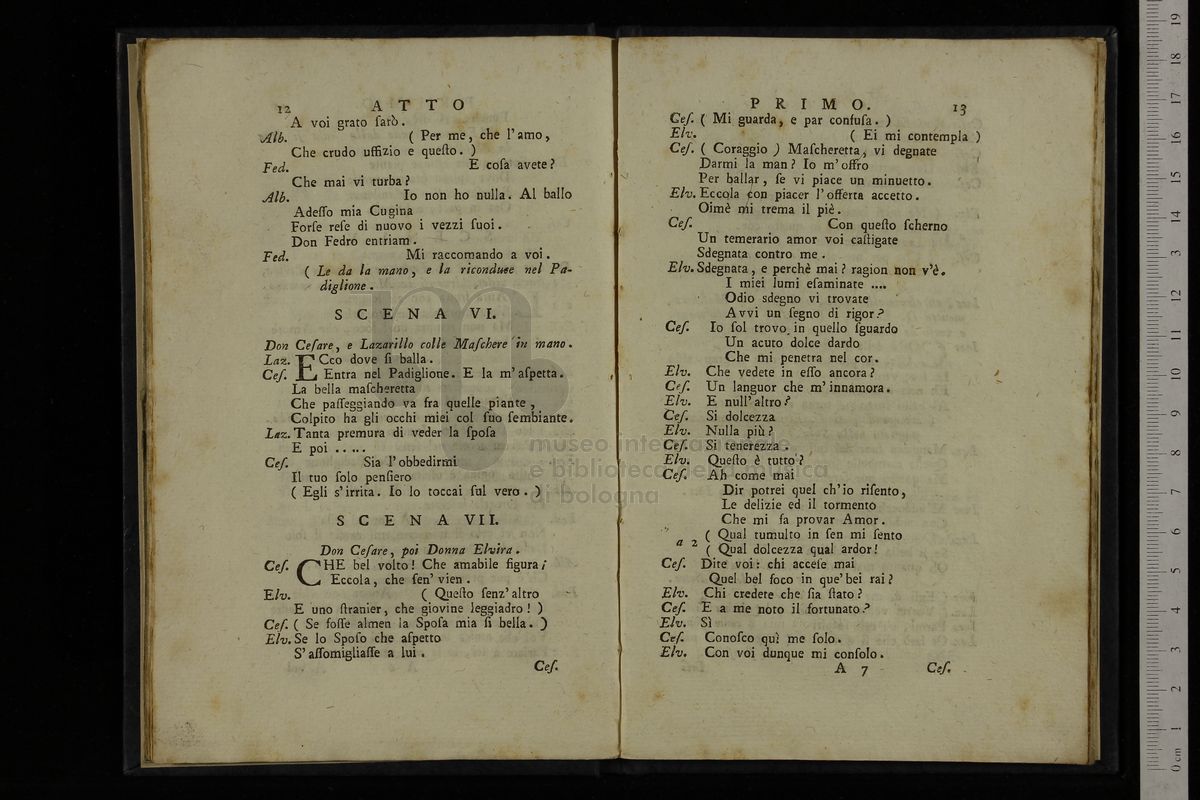 12 ATTO
A voi grato ſarò.
Alb. ( Per me, che l'amo,
Che crudo uffizio e queſto. )
Fed. E coſa avete?
Che mai vi turba?
Alb. Io non ho nulla. Al ballo
Adeſſo mia Cugina
Forſe reſe di nuovo i vezzi ſuoi.
Don Fedro entriam.
Fed. Mi raccomando a voi.
( Le da la mano, e la riconduee nel Pa-
diglione.
SCENA VI.
Don Ceſare, e Lazarillo colle Maſchere in mano.
Laz. ECco dove ſi balla.
Ceſ. Entra nel Padiglione. E la m'aſpetta.
La bella maſcheretta
Che paſſeggiando va fra quelle piante,
Colpito ha gli occhi miei col ſuo ſembiante.
Laz. Tanta premura di veder la ſpoſa
E poi .....
Ceſ. Sia l'obbedirmi
Il tuo ſolo penſiero
( Egli s'irrita. Io lo toccai ſul vero. )
SCENA VII.
Don Ceſare, poi Donna Elvira.
Ceſ. CHE bel volto! Che amabile figura!
Eccola, che ſen' vien.
Elv. ( Queſto ſenz'altro
E uno ſtranier, che giovine leggiadro! )
Ceſ. ( Se foſſe almen la Spoſa mia ſi bella. )
Elv. Se lo Spoſo che aſpetto
S'aſſomigliaſſe a lui.
Ceſ.
PRIMO. 13
Ceſ. ( Mi guarda, e par confuſa. )
Elv. ( Ei mi contempla )
Ceſ. ( Coraggio ) Maſcheretta, vi degnate
Darmi la man? Io m'offro
Per ballar, ſe vi piace un minuetto.
Elv. Eccola con piacer l'offerta accetto.
Oimè mi trema il piè.
Ceſ. Con queſto ſcherno
Un temerario amor voi caſtigate
Sdegnata contro me.
Elv. Sdegnata, e perchè mai? ragion non v'è.
I miei lumi eſaminate ....
Odio sdegno vi trovate
Avvi un ſegno di rigor?
Ceſ. Io ſol trovo in quello ſguardo
Un acuto dolce dardo
Che mi penetra nel cor.
Elv. Che vedete in eſſo ancora?
Ceſ. Un languor che m'innamora.
Elv. E null'altro?
Ceſ. Si dolcezza
Elv. Nulla più?
Ceſ. Si tenerezza.
Elv. Queſto è tutto?
Ceſ. Ah come mai
Dir potrei quel ch'io riſento,
Le delizie ed il tormento
Che mi fa provar Amor.
( Qual tumulto in ſen mi ſento
a 2
( Qual dolcezza qual ardor!
Ceſ. Dite voi: chi acceſe mai
Quel bel foco in que'bei rai?
Elv. Chi credete che ſia ſtato?
Ceſ. E a me noto il fortunato?
Elv. Sì
Ceſ. Conoſco quì me ſolo.
Elv. Con voi dunque mi conſolo.
A 7 Ceſ.
museo internazionale
e biblioteca della musica
di bologna
0 cm 1 2 3 4 5 6 7 8 9 10 11 12 13 14 15 16 17 18 19